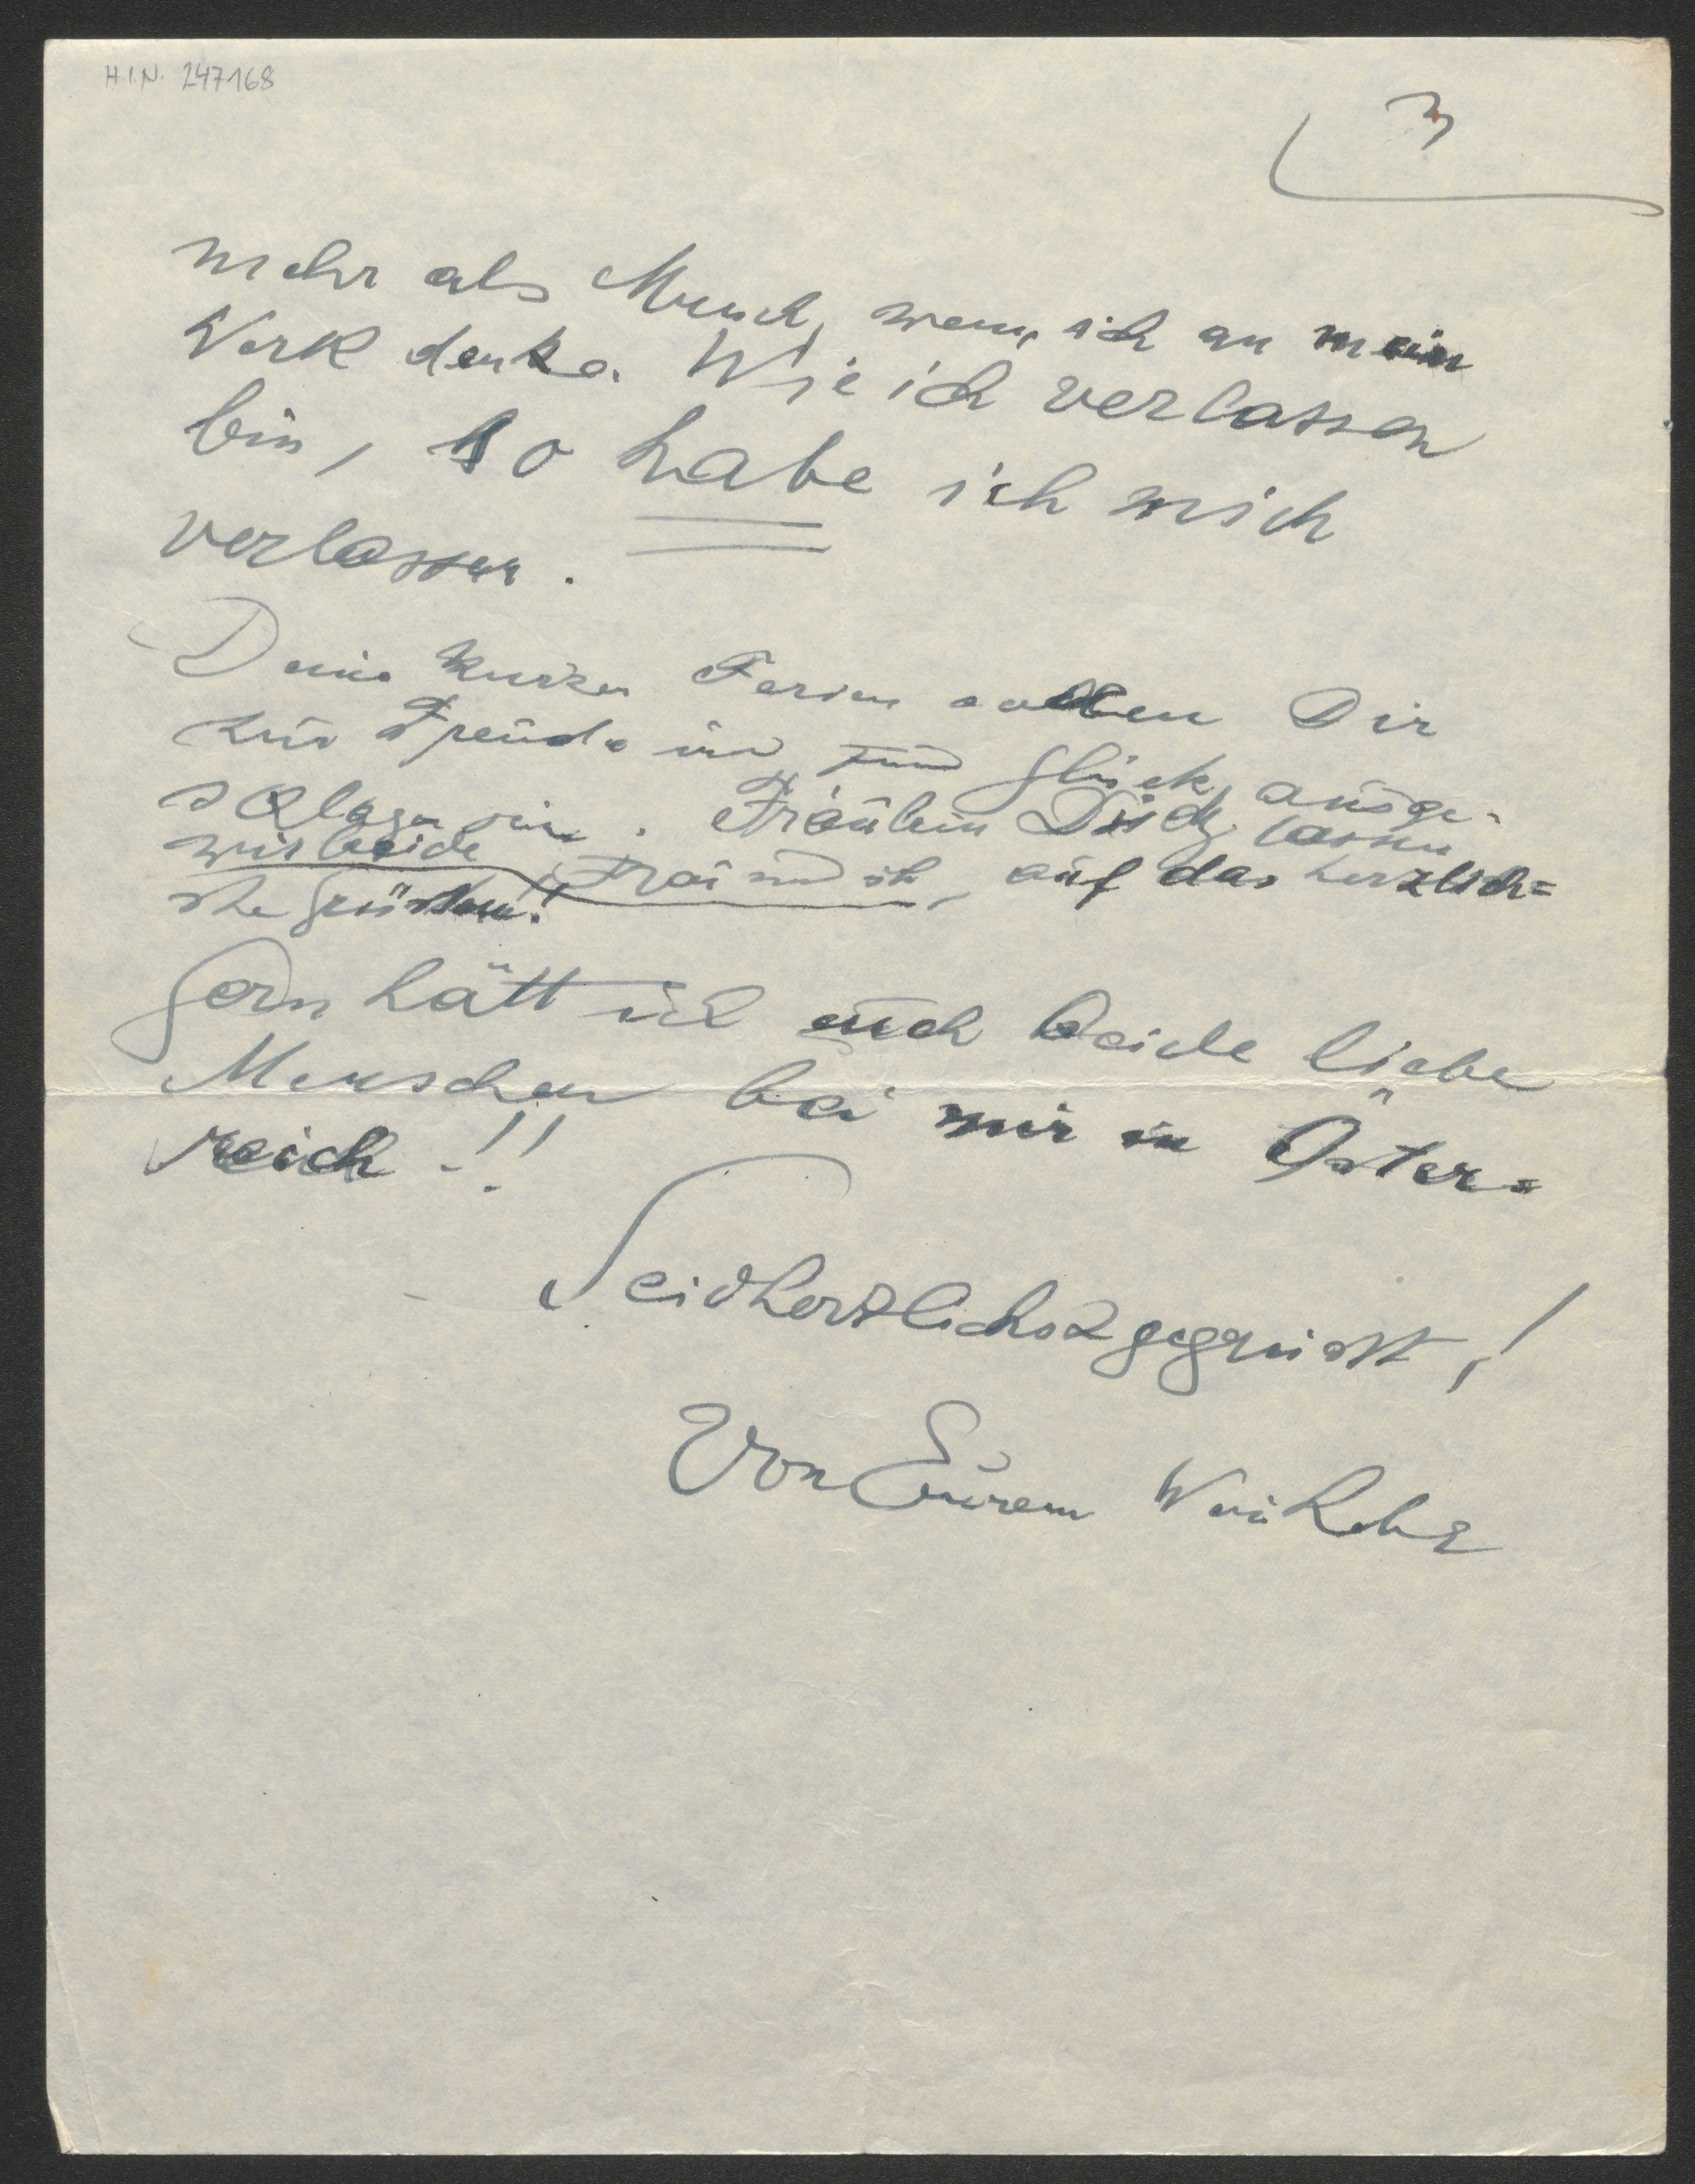 H.I.N. 247168
3
mehr als Mensch, wenn ich an mein
Werk denke. Wie ich verlassen
bin, so habe ich mich
verlassen.
Deine kurzen Ferien sollen Dir
zur Freude und Glück ausge-
schlagen sein. Fräulein lassen
wir beide, Frau und ich, auf das herzlich=
ste grüssen!
Gern hätt ich euch beide liebe
Menschen bei mir in Öster=
reich!!
Seid herzlichst gegrüsst,!
Von Eurem